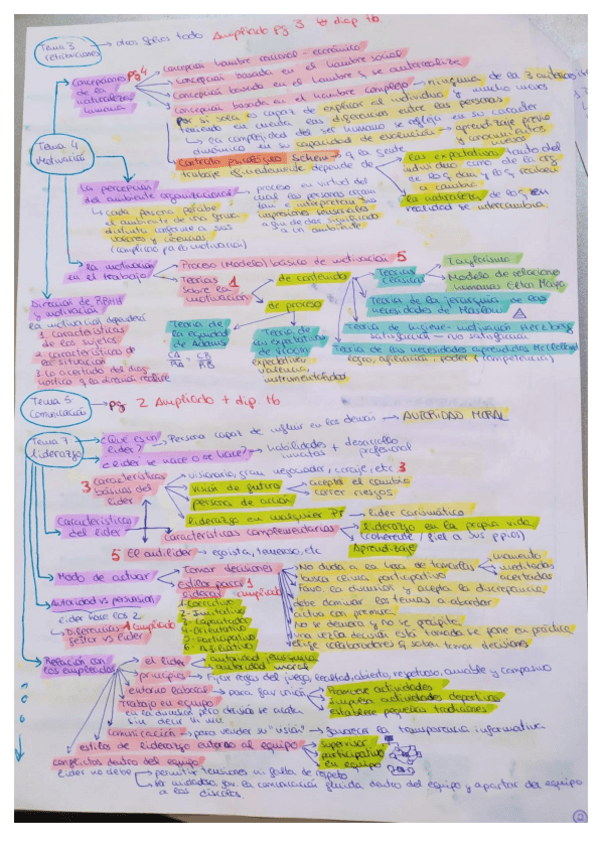 Tema 3
retribuciones → otros folios todo Ampliado pg 3 + diap tb.
concepciones pg 4
de la
naturaleza
humana
concepción hombre racional - económico
concepción basada en el hombre social
concepción basada en el hombre q se autorrealiza
concepción basada en el hombre complejo → ninguna de la 3 anteriores
por si sola es capaz de explicar al individuo y mucho menos
teniendo en cuenta las diferencias entre las personas
↳ la complejidad del ser humano se refleja en su carácter
dinámico en su capacidad de evolución → aprendizaje previo
conocimientos
nuevos
Tema 4
Motivación
contrato psicológico Schein → q la gente
trabaje eficientemente depende de
las expectativas tanto del
individuo como de la org
de lo q dan y lo q reciben
a cambio
la naturaleza de lo q en
realidad se intercambia
la percepción
del ambiente organizacional → proceso en virtud del
cual las personas
e interpretan sus
impresiones sensoriales
a fin de dar significado
a un ambiente
↳ cada persona percibe
el ambiente de una forma
distinta conforme a sus
valores y creencias
(complicado pa la motivación)
la motivación
en el trabajo
Proceso (Modelo) básico de motivación 5
Teorías 1
sobre la
motivación
de contenido
de proceso
Teorías
clásicas
Taylorismo
Modelo de relaciones
humanas Elton Mayo
Teoría de la jerarquía de las
necesidades de Maslow
Teoría de higiene - motivación Herzberg
satisfacción — no satisfacción
Teoría de las necesidades aprendidas McClelland
logro, afiliación, poder (competencia)
Dirección de RRHH
y motivación
la motivación dependerá
1. Características
de los sujetos
2. características de
la situación
3. lo acertado del diag-
nóstico q la dirección realice
Teoría de
la equidad
de Adams
Teoría de
las expectativas
de Vroom
expectativa
valencia,
instrumentalidad
Tema 5
Comunicación → pg 2 Ampliado + diap tb
Tema 7
liderazgo
¿Qué es un
líder? → Persona capaz de influir en los demás → AUTORIDAD MORAL
¿líder se nace o se hace? → habilidades + desarrollo
innatas profesional
3 características
básicas del
líder
visionario, gran negociador, coraje, etc 3
visión de futuro
persona de acción
acepta el cambio
correr riesgos
liderazgo en cualquier → líder carismático
Características
del líder
características complementarias
liderazgo en la propia vida
(coherente / fiel a sus ppios)
Aprendizaje
5 El antilíder → egoísta, temeroso, etc
Modo de actuar
Tomar decisiones
No duda a la hora de tomarlas
momento
meditadas
acertadas
busca clima participativo
Favo. la discusión y acepta la discrepancia
debe dominar los temas a abordar
actúa con premura
No se demora y no se precipita
una vez la decisión está tomada se pone en práctica
elige colaboradores q saben tomar decisiones
estilos para 1
liderar ampliado
1-Coercitivo
2-Imitativo
3-Capacitador
4-Orientativo
5-Participativo
6-Afiliativo
Autoridad vs persuasión
líder hace los 2
↳ Diferencias 1 ampliado
gestor vs líder
Relación con
los empleados
el líder
autoridad jerárquica
autoridad moral
principios → Fijar reglas del juego, lealtad, abierto, respetuoso, amable y compasivo
entorno laboral → para fav unión
Promueve actividades
Impulsa actividades deportivas
establece pequeñas tradiciones
Trabajo en equipo
en la discusión pero decisión se acata
sin decir ni mú
comunicación → para vender su "visión" → favorece la transparencia informativa
estilos de liderazgo entorno al equipo
supervisor
participativo
en equipo
conflictos dentro del equipo
líder no debe → permitir tensiones ni falta de respeto
ser cuidadoso fav la comunicación fluida dentro del equipo y apartar del equipo
a los díscolos.